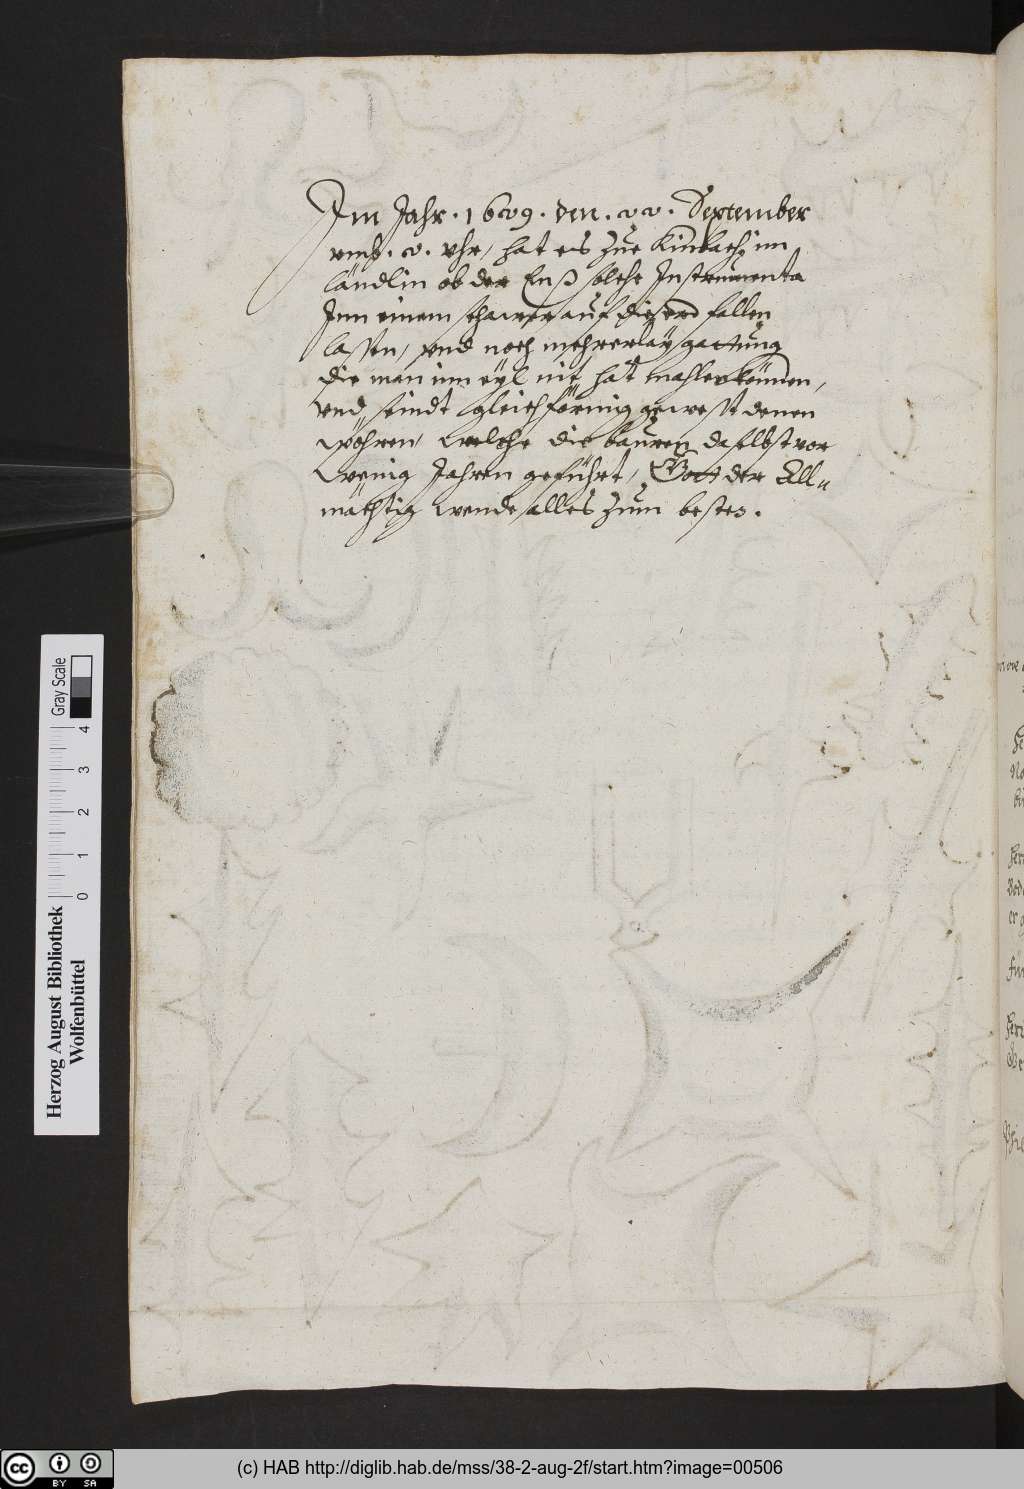 Im Jahr · 1609 · den · 00 · September
vmb · 0 · vhr, hat es zue Kimbach im
Ländlin ob der Enß solche Instrumenta
Inn einem schawer auf die erd fallen
lassen, vnd noch mehrerlaÿ gattung
die man inn eÿl nit hat mahlen können,
vnd seindt gleichförmig gewesst denen
wöhren, welche die bauren daselbst vor
wenig Jahren geführt, Gott der All„
mächtig wende alles zum besten.
Herzog August Bibliothek
Wolfenbüttel
0 1 2 3 4
Gray Scale
cc BY SA
(c) HAB http://diglib.hab.de/mss/38-2-aug-2f/start.htm?image=00506